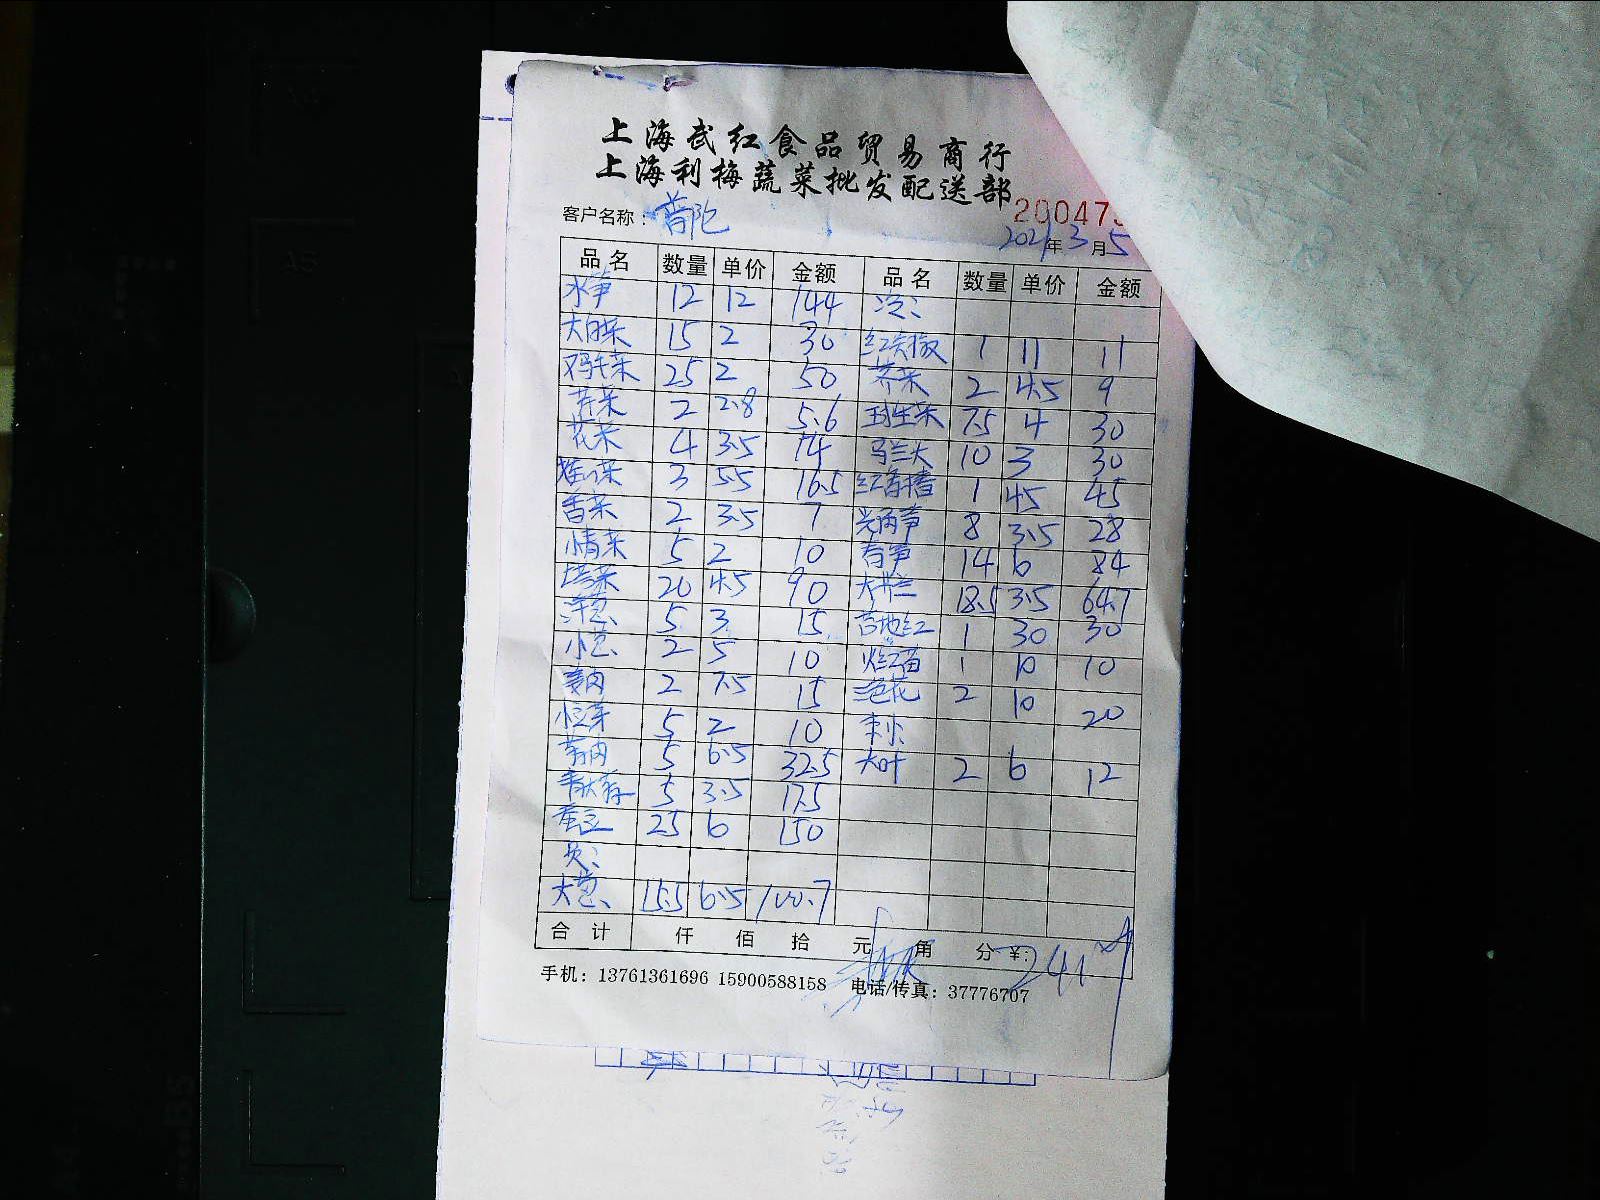 上海武红食品贸易商行
上海利梅蔬菜批发配送部
200473
客户名称： 普陀
2021年3月5
品名 数量 单价 金额 品名 数量 单价 金额
水笋 12 12 144 冷：
大白菜 15 2 30 红尖椒 1 11 11
鸡毛菜 25 2 50 荠菜 2 4.5 9
芹菜 2 2.8 5.6 球生菜 7.5 4 30
花菜 4 3.5 14 马兰头 10 3 30
3 5.5 16.5 1 45 45
香菜 2 3.5 7 8 3.5 28
小青菜 5 2 10 春笋 14 6 84
塔菜 20 4.5 90 18.5 3.5 64.7
洋葱 5 3 15 1 30 30
小葱 2 5 10 1 10 10
姜肉 2 7.5 15 三色花 2 10 20
小豆芽 5 2 10
5 6.5 32.5 大叶 2 6 12
5 3.5 17.5
25 6 150
大葱 15.5 6.5 100.7
合计 仟 佰 拾 元 角 分 ¥: 241
手机：13761361696 15900588158 电话/传真：37776707